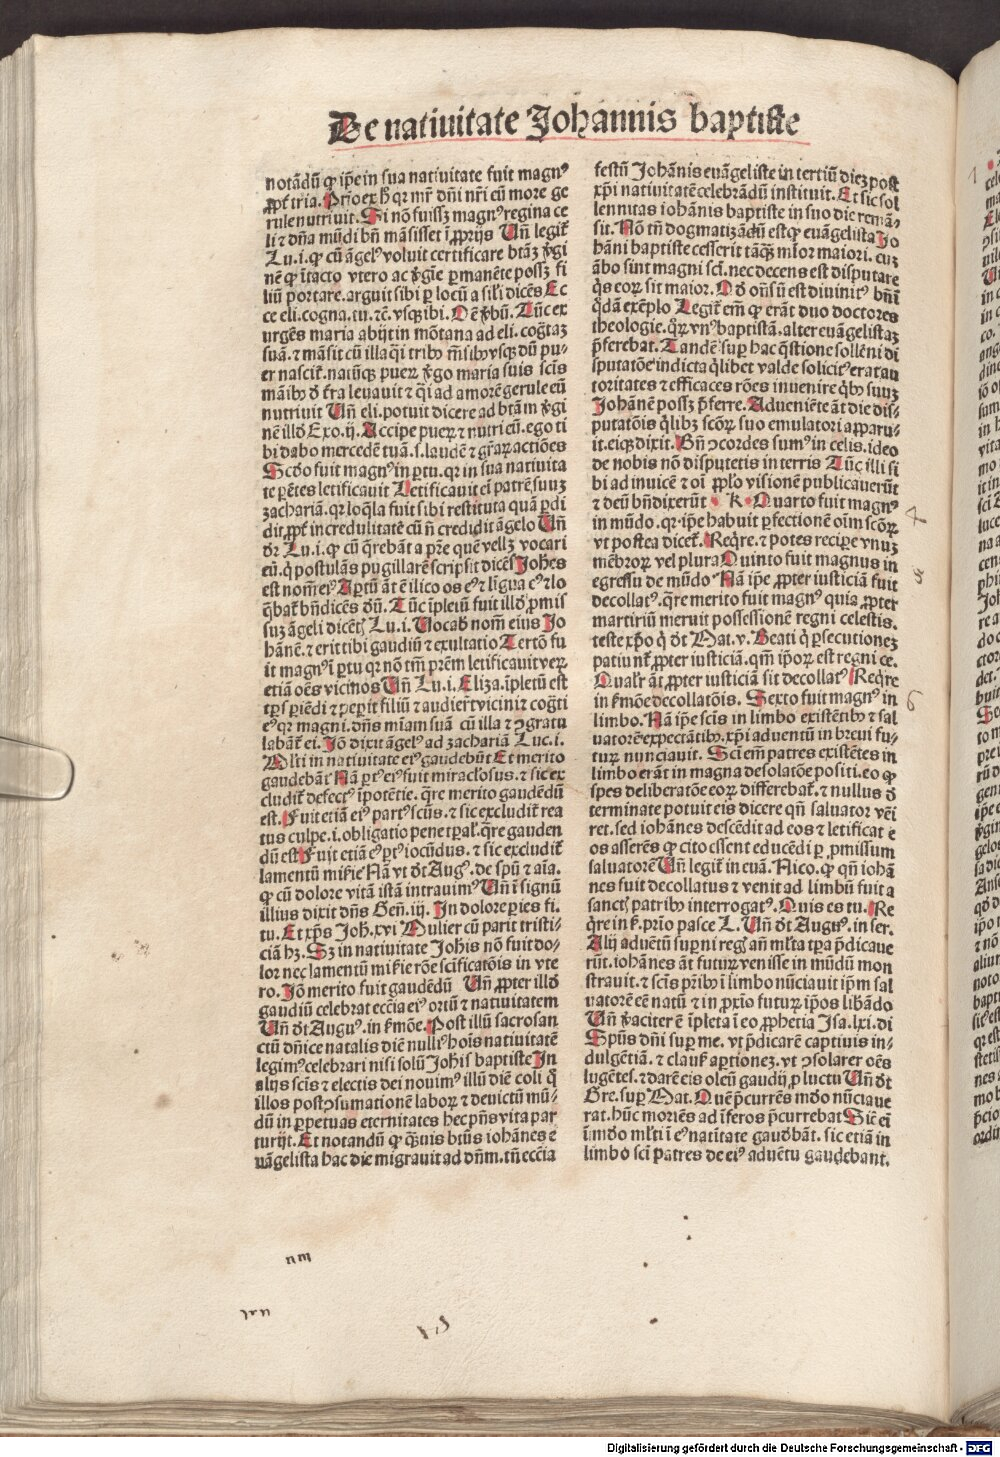 De natiuitate Johannis baptiste
notādū ꝙ ip̄e in sua natiuitate fuit magnꝰ
ꝓpt̄ tria. Prīo ex h̄ qꝛ mr̄ dn̄i nr̄i cū more ge
rule nutriuit. Si nō fuissꝫ magnꝰ regina ce
li ⁊ dn̄a mūdi bn̄ māsisset ī ꝓprijs Un̄ legit᷑
Lu. i. ꝙ cū āgelꝰ voluit certificare btāꝫ v̄gi
nē ꝙ ītacto vtero ac v̄gīe ꝑmanēte possꝫ fi
liū portare. arguit sibi ꝑ locū a sil̄i dicēs Ec
ce eli. cogna. tu. ⁊c̄. vsqꝫ ibi. Oē v̄bū. Tūc ex
urgēs maria abijt in mōtana ad eli. coḡtaꝫ
suā. ⁊ māsit cū illa q̄i tribꝰ mēsibꝰ vsqꝫ dū pu-
er nascit᷑. natūqꝫ pueꝝ v̄go maria suis scīs
māibꝰ d̄ t̄ra leuauit ⁊ q̄i ad amorē gerule eū
nutriuit Un̄ eli. potuit dicere ad btām v̄gi
nē illd̄ Exo. ij. Accipe pueꝝ ⁊ nutri eū. ego ti
bi dabo mercedē tuā. s. laudē ⁊ gr̄aꝝ actiōes
Scd̄o fuit magnꝰ in ꝑtu. qꝛ in sua natiuita
te ꝑētes letificauit Letificauit em̄ patrē suuꝫ
zachariā. qꝛ loq̄la fuit sibi restituta quā ꝑdi
dit ꝓpt̄ incredulitatē cū n̄ credidit āgelo Un̄
dr̄ Lu. i. ꝙ cū q̄rebāt a pr̄e quē vellꝫ vocari
eū. q̇ postulās pugillarē scripsit dicēs Joh̄es
est nomē eiꝰ Aꝑtū āt ē ilico os eiꝰ ⁊ līgua eiꝰ ⁊ lo
q̄bat᷑ bn̄dicēs dn̄m. Tūc īpletū fuit illd̄ ꝓmis
suꝫ āgeli dicētꝭ Lu. i. Uocab̄ nomē eius Jo
hānē. ⁊ erit tibi gaudiū ⁊ exultatio Tertō fu
it magnꝰ ī ꝑtu qꝛ nō tm̄ prēm letificauit veꝝ
etiā oēs vicinos Un̄ Lu. i. Eliza. īpletū est
tp̄s pariēdi ⁊ peꝑit filiū ⁊ audierūt vicini ⁊ coḡti
eiꝰ qꝛ magni. dn̄s mīam suā cū illa ⁊ ꝯgratu
labāt᷑ ei. Jō dixit āgelꝰ ad zachariā Luc. i.
Ml̄ti in natiuitate eiꝰ gaudebūt Et merito
gaudebāt Nā ꝑtꝰ eiꝰ fuit miracl̄osus. ⁊ sic ex
cludit᷑ defectꝰ īpotētie. q̄re merito gaudēdū
est. Fuit etiā eiꝰ partꝰ scūs. ⁊ sic excludit᷑ rea
tus culpe. i. obligatio pene tp̄al̄. q̄re gauden
dū est Fuit etiā eiꝰ ꝑtꝰ iocūdus. ⁊ sic excludit᷑
lamentū mis̄ie Nā vt dt̄ Augꝰ. de spū ⁊ aīa.
ꝙ cū dolore vitā istā intrauimꝰ Un̄ ī signū
illius dixit dn̄s Gen̄. iij. In dolore paries fi.
tu. Et xp̄s Joh. xvi Mulier cū parit tristi-
ciā hꝫ. Sꝫ in natiuitate Joh̄is nō fuit do-
lor nec lamentū mis̄ie rōe scīficatōis in vte
ro. Jō merito fuit gaudēdū Un̄ ꝓpter illd̄
gaudiū celebrat ecc̄ia eiꝰ ortū ⁊ natiuitatem
Un̄ dt̄ Auguꝰ. in s̄mōe. Post illū sacrosan
ctū dn̄ice natalis diē nulliꝰ hoīs natiuitatē
legimꝰ celebrari nisi solū Joh̄is baptiste In
alijs scīs ⁊ electis dei nouimꝰ illū diē coli q̇
illos post ꝯsumationē laboꝝ ⁊ deuictū mū-
dū in ꝑpetuas eternitates hec pn̄s vita par
turijt. Et notandū ꝙ q̄uis btūs iohānes e
uāgelista hac die migrauit ad dn̄m. tn̄ ecc̄ia
festū Johānis euāgeliste in tertiū dieꝫ post
xp̄i natiuitatē celebrādū instituit. Et sic sol
lennitas iohānis baptiste in suo die remā-
sit. Nō tn̄ dogmatizādū est ꝙ euāgelista Jo
hāni baptiste cesserit tāqꝫ mīor maiori. cuꝫ
ābo sint magni scī. nec decens est disputare
q̇s eoꝝ sit maior. Qd̄ on̄sū est diuinitꝰ bn̄i
q̇dā exēplo Legit᷑ em̄ ꝙ erāt duo doctores
theologie. q̇ꝝ vnꝰ baptistā. alter euāgelistaꝫ
p̄ferebat. Tandē suꝑ hac q̄stione sollēni di
sputatōe indicta q̇libet valde solicitꝰ erat au
toritates ⁊ efficaces rōes inuenire q̇bꝰ suuꝫ
Johānē possꝫ p̄ferre. Adueniēte āt die dis-
putatōis q̇libꝫ scōꝝ suo emulatori apparu-
it. eiqꝫ dixit. Bn̄ ꝯcordes sumꝰ in celis. ideo
de nobis nō disputetis in terris Tūc illi si
bi ad inuicē ⁊ oī ꝓplo visionē publicauerūt
⁊ deū bn̄dixerūt · K · Quarto fuit magnꝰ
in mūdo. qꝛ ip̄e habuit ꝑfectionē oīm scōꝝ
vt postea dicet᷑. Req̄re. ⁊ potes reciꝑe vnuꝫ
mēbroꝝ vel plura Quinto fuit magnus in
egressu de mūdo Nā ip̄e ꝓpter iusticiā fuit
decollatꝰ. q̄re merito fuit magnꝰ quia ꝓpter
martiriū meruit possessionē regni celestis.
teste xp̄o q̇ dt̄ Mat. v. Beati q̇ ꝑsecutioneꝫ
patiunt᷑ ꝓpter iusticiā. qm̄ ip̄oꝝ est regnū ce.
Qual̄r āt ꝓpter iusticiā sit decollatꝰ Req̄re
in s̄mōe decollatōis. Sexto fuit magnꝰ in
limbo. Nā ip̄e scīs in limbo existētibꝰ ⁊ sal
uatorē expectātibꝰ. xp̄i aduentū in breui fu-
tuꝝ nunciauit. Scī em̄ patres existētes in
limbo erāt in magna desolatōe positi. eo ꝙ
spes deliberatōe eoꝝ differebat᷑. ⁊ nullus d̄
terminate potuit eis dicere qn̄ saluator vēi
ret. sed iohānes descēdit ad eos ⁊ letificat e
os asserēs ꝙ cito essent educēdi ꝑ ꝓmissum
saluatorē Un̄ legit᷑ in euā. Nico. ꝙ qn̄ iohā
nes fuit decollatus ⁊ venit ad limbū fuit a
sanctꝭ patribꝰ interrogatꝰ. Quis es tu. Re
q̄re in s̄. prīo pasce L. Un̄ dt̄ Augusꝰ. in ser.
Alij aduētū suꝑni regꝭ an̄ ml̄ta tp̄a p̄dicaue
rūt. iohānes āt futuꝝ venisse in mūdū mon
strauit. ⁊ scīs pr̄ibꝰ ī limbo nūciauit ip̄m sal
uatorē eē natū ⁊ in ꝓxīo futuꝝ ip̄os lib̄ādo
Un̄ v̄aciter ē īpleta ī eo ꝓphetia Isa. lxi. di
Spūs dn̄i suꝑ me. vt p̄dicarē captiuis in-
dulgētiā. ⁊ clausꝭ aꝑtioneꝫ. vt ꝯsolarer oēs
lugētes. ⁊ darē eis oleū gaudij ꝓ luctu Un̄ dt̄
Gre. suꝑ Mat. Quē p̄currēs mūdo nūciaue
rat. hūc moriēs ad īferos p̄currebat Sic̄ em̄
ī mūdo ml̄ti ī eiꝰ natītate gaudbāt. sic etiā in
limbo scī patres de eiꝰ aduētu gaudebant.
4
5
6
nm
Digitalisierung gefördert durch die Deutsche Forschungsgemeinschaft - DFG